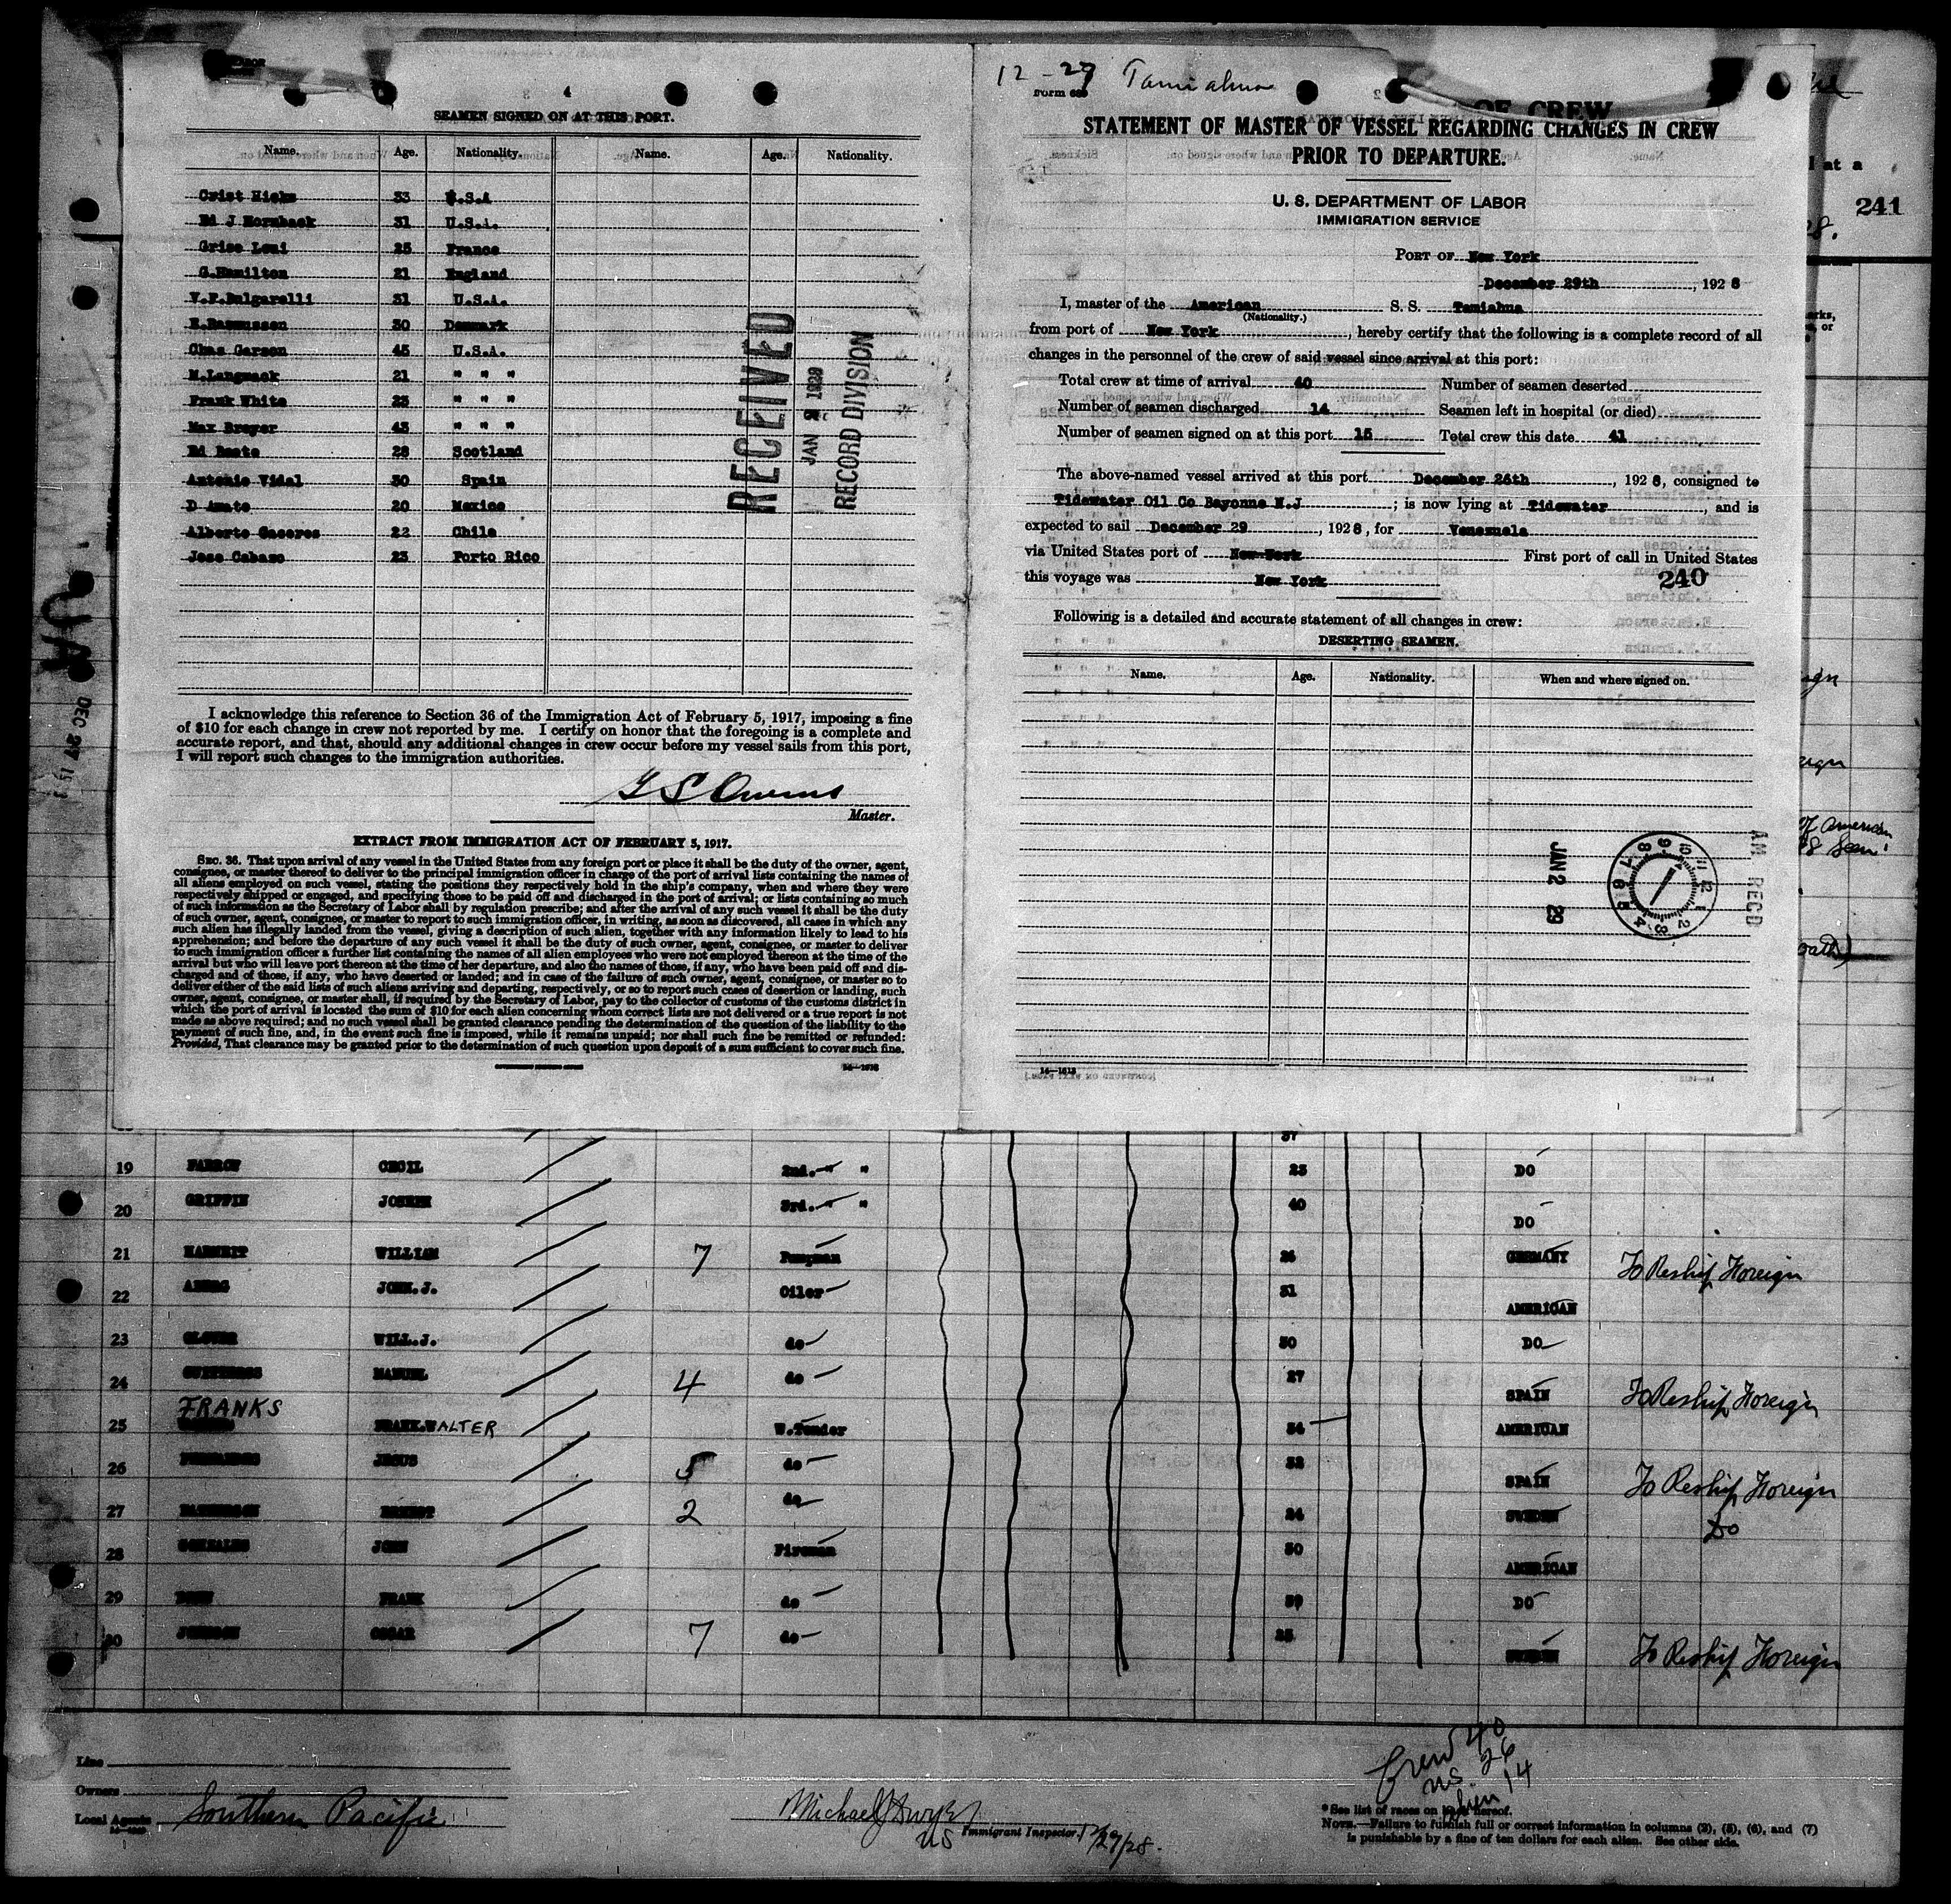 4
SEAMEN SIGNED ON AT THIS PORT.
Name. Age. Nationality. Name. Age. Nationality.
Crist Hicks 33 U.S.A
Ed J Hornback 31 U.S.A.
Grise Loui 25 France
G.Hamilton 21 England
V.F.Bulgarelli 31 U.S.A.
E.Rasmussen 30 Denmark
Chas Garson 45 U.S.A.
M.Langmack 21 " " "
Frank White 23 " " "
Max Breyer 43 " " "
Ed Beate 28 Scotland
Antonio Vidal 30 Spain
D Amato 20 Mexico
Alberto Caceres 22 Chile
Jose Cabase 23 Porto Rico
RECEIVED
JAN 2 1929
RECORD DIVISION
I acknowledge this reference to Section 36 of the Immigration Act of February 5, 1917, imposing a fine
of $10 for each change in crew not reported by me. I certify on honor that the foregoing is a complete and
accurate report, and that, should any additional changes in crew occur before my vessel sails from this port,
I will report such changes to the immigration authorities.
Owens
Master.
EXTRACT FROM IMMIGRATION ACT OF FEBRUARY 5, 1917.
SEC. 36. That upon arrival of any vessel in the United States from any foreign port or place it shall be the duty of the owner, agent,
consignee, or master thereof to deliver to the principal immigration officer in charge of the port of arrival lists containing the names of
all aliens employed on such vessel, stating the positions they respectively hold in the ship's company, when and where they were
respectively shipped or engaged, and specifying those to be paid off and discharged in the port of arrival; or lists containing so much
of such information as the Secretary of Labor shall by regulation prescribe; and after the arrival of any such vessel it shall be the duty
of such owner, agent, consignee, or master to report to such immigration officer, in writing, as soon as discovered, all cases in which any
such alien has illegally landed from the vessel, giving a description of such alien, together with any information likely to lead to his
apprehension; and before the departure of any such vessel it shall be the duty of such owner, agent, consignee, or master to deliver
to such immigration officer a further list containing the names of all alien employees who were not employed thereon at the time of the
arrival but who will leave port thereon at the time of her departure, and also the names of those, if any, who have been paid off and dis-
charged and of those, if any, who have deserted or landed; and in case of the failure of such owner, agent, consignee, or master so to
deliver either of the said lists of such aliens arriving and departing, respectively, or so to report such cases of desertion or landing, such
owner, agent, consignee, or master shall, if required by the Secretary of Labor, pay to the collector of customs of the customs district in
which the port of arrival is located the sum of $10 for each alien concerning whom correct lists are not delivered or a true report is not
made as above required; and no such vessel shall be granted clearance pending the determination of the question of the liability to the
payment of such fine, and, in the event such fine is imposed, while it remains unpaid; nor shall such fine be remitted or refunded:
Provided, That clearance may be granted prior to the determination of such question upon deposit of a sum sufficient to cover such fine.
12-29 Tamiahua
Form
OF CREW
STATEMENT OF MASTER OF VESSEL REGARDING CHANGES IN CREW
PRIOR TO DEPARTURE.
U. S. DEPARTMENT OF LABOR
IMMIGRATION SERVICE
PORT OF New York
December 29th, 1928
I, master of the American S. S. Tamiahua
(Nationality.)
from port of New York, hereby certify that the following is a complete record of all
changes in the personnel of the crew of said vessel since arrival at this port:
Total crew at time of arrival 40 Number of seamen deserted
Number of seamen discharged 14 Seamen left in hospital (or died)
Number of seamen signed on at this port 15 Total crew this date 41
The above-named vessel arrived at this port December 26th, 1928, consigned to
Tidewater Oil Co Bayonne N.J; is now lying at Tidewater, and is
expected to sail December 29, 1928, for Venezuela
via United States port of New York First port of call in United States
this voyage was New York
240
Following is a detailed and accurate statement of all changes in crew:
DESERTING SEAMEN.
Name. Age. Nationality. When and where signed on.
JAN 2 29
AM REC'D
14—1613
at a
241
28.
of American
DEC 27
37
19 CECIL 2nd. " " 23 DO
20 GRIFFIN JOSEPH 3rd. " " 40 DO
21 WILLIAM 7 Pumpman 26 GERMANY To Reship Foreign
22 JOHN.J. Oiler 31 AMERICAN
23 GLOVER WILL.J. do 30 DO
24 MANUEL 4 do 27 SPAIN To Reship Foreign
FRANKS
25 FRANK.WALTER W.Tender 34 AMERICAN
26 JESUS 5 do 32 SPAIN To Reship Foreign
27 ERNEST 2 do 24 SWEDEN Do
28 GONZALES JOHN Fireman 30 AMERICAN
29 FRANK do 39 DO
30 JOHNSON OSCAR 7 do 25 SWEDEN To Reship Foreign
Line
Owners
Local Agents Southern Pacific
Michael J Dwyer
US Immigrant Inspector. 12/27/28.
Crew 40
US. 26
Alien 14
* See list of races on back hereof.
NOTE.—Failure to furnish full or correct information in columns (2), (5), (6), and (7)
is punishable by a fine of ten dollars for each alien. See other side.